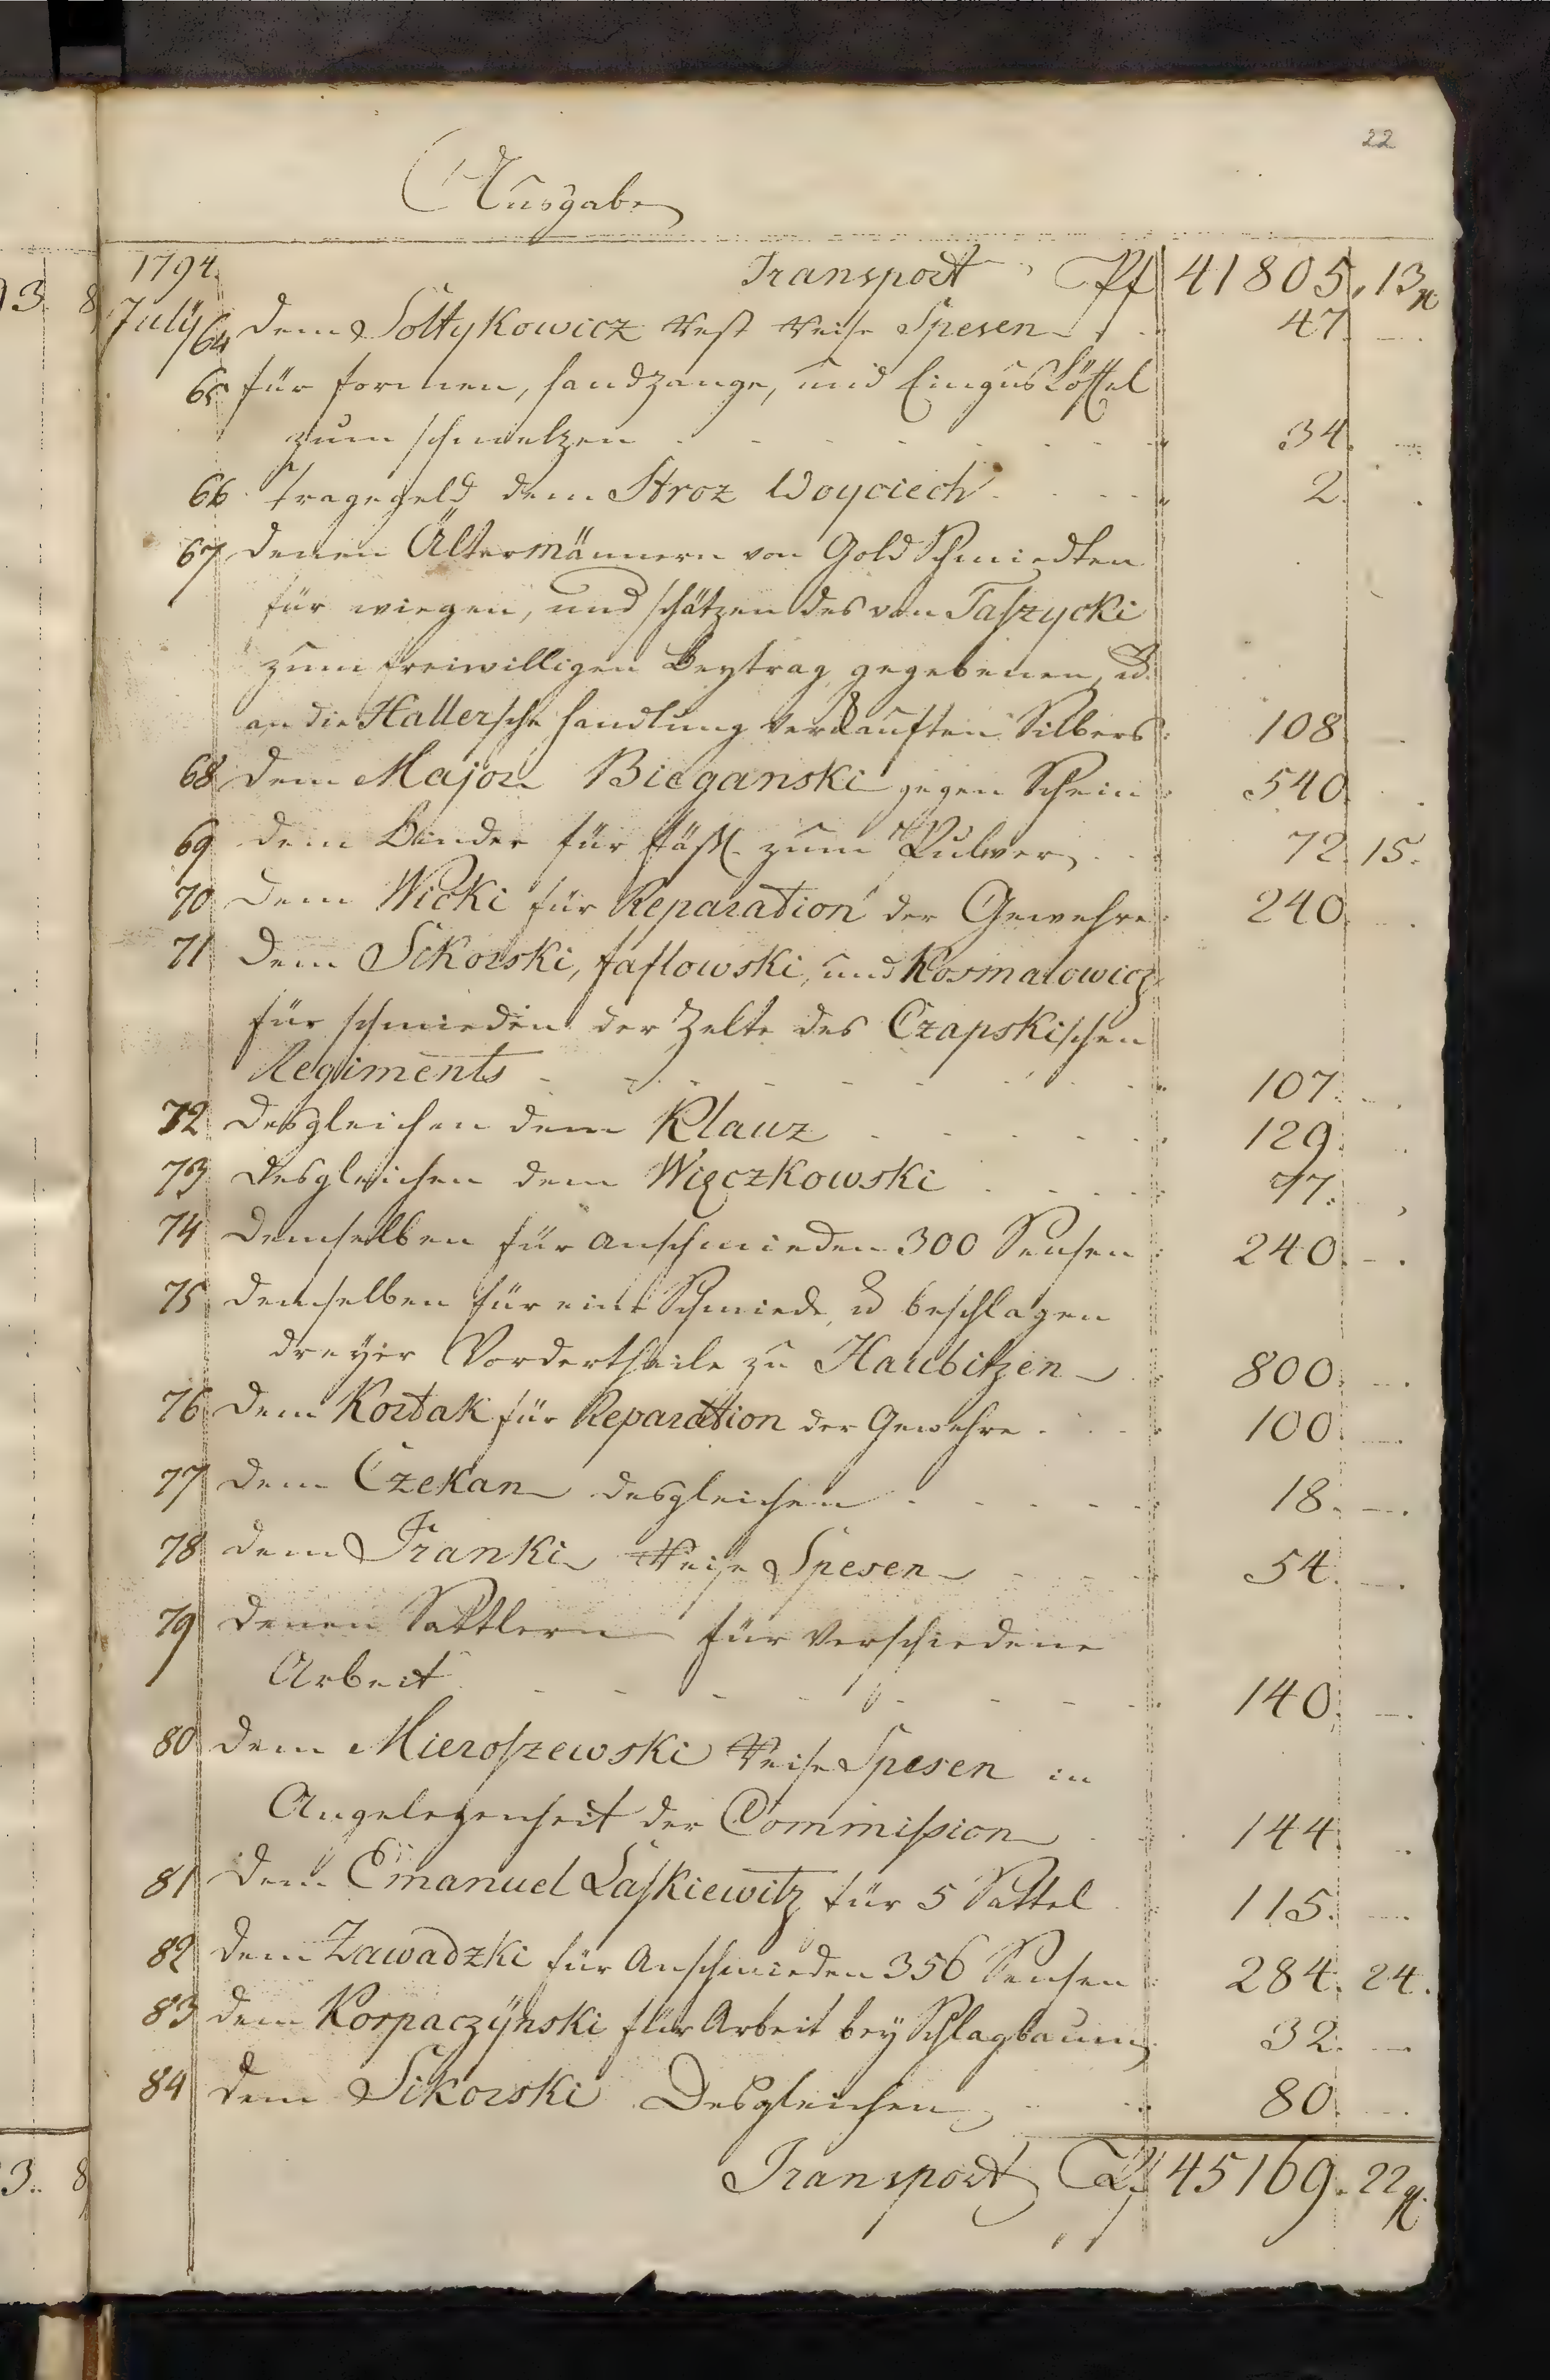 22
Ausgabe
1794. Transport Pf 41805. 13 gr
July 64 dem Soltykowicz Rest Reise Spesen 47. —.
65 für formen, handzange, und Eingus Löffel
zum schmelzen 34. —
66 Tragegeld dem Stroz Woyciech 2. .
67 denen Ältermännern von Gold Schmiedten
für wiegen, und schätzen des von Taszycki
zum freiwilligen Beytrag gegebenen, u.
an die Hallersche Handlung verkauften Silbers 108 —
68 dem Major Bieganski gegen Schein 540. .
69 dem Binder für fäßl. zum Pulver 72. 15.
70 dem Wicki für Reparation der Gewehre 240. —.
71 dem Sikorski, Jaslowski, und Kosmalowicz
für schmieden der Zelte des Czapskischen
Regiments 107. —.
72 desgleichen dem Klauz 129. ..
73 desgleichen dem Więczkowski 97.
74 demselben für anschmieden 300 Sensen 240. —.
75 demselben für eine Schmiede, u beschlagen
dreyer Vordertheile zu Haubitzen 800. —.
76 dem Kortak für Reparation der Gewehre 100. —.
77 dem Czekan desgleichen 18. —.
78 dem Franki Reise Spesen 54. —.
79 denen Sattlern für verschiedene
Arbeit 140. —.
80 dem Mieroszewski Reise Spesen in
Angelegenheit der Commission 144. ..
81 dem Emanuel Laskiewitz für 5 Sattel 115. —
82 dem Zawadzki für Anschmieden 356 Sensen 284. 24.
83 dem Korpaczÿnski für Arbeit beÿ Schlagbaum 32. —
84 dem Sikorski Desgleichen 80. —.
Transport Pf 45169. 22 gr.
3. 8
3.. 8